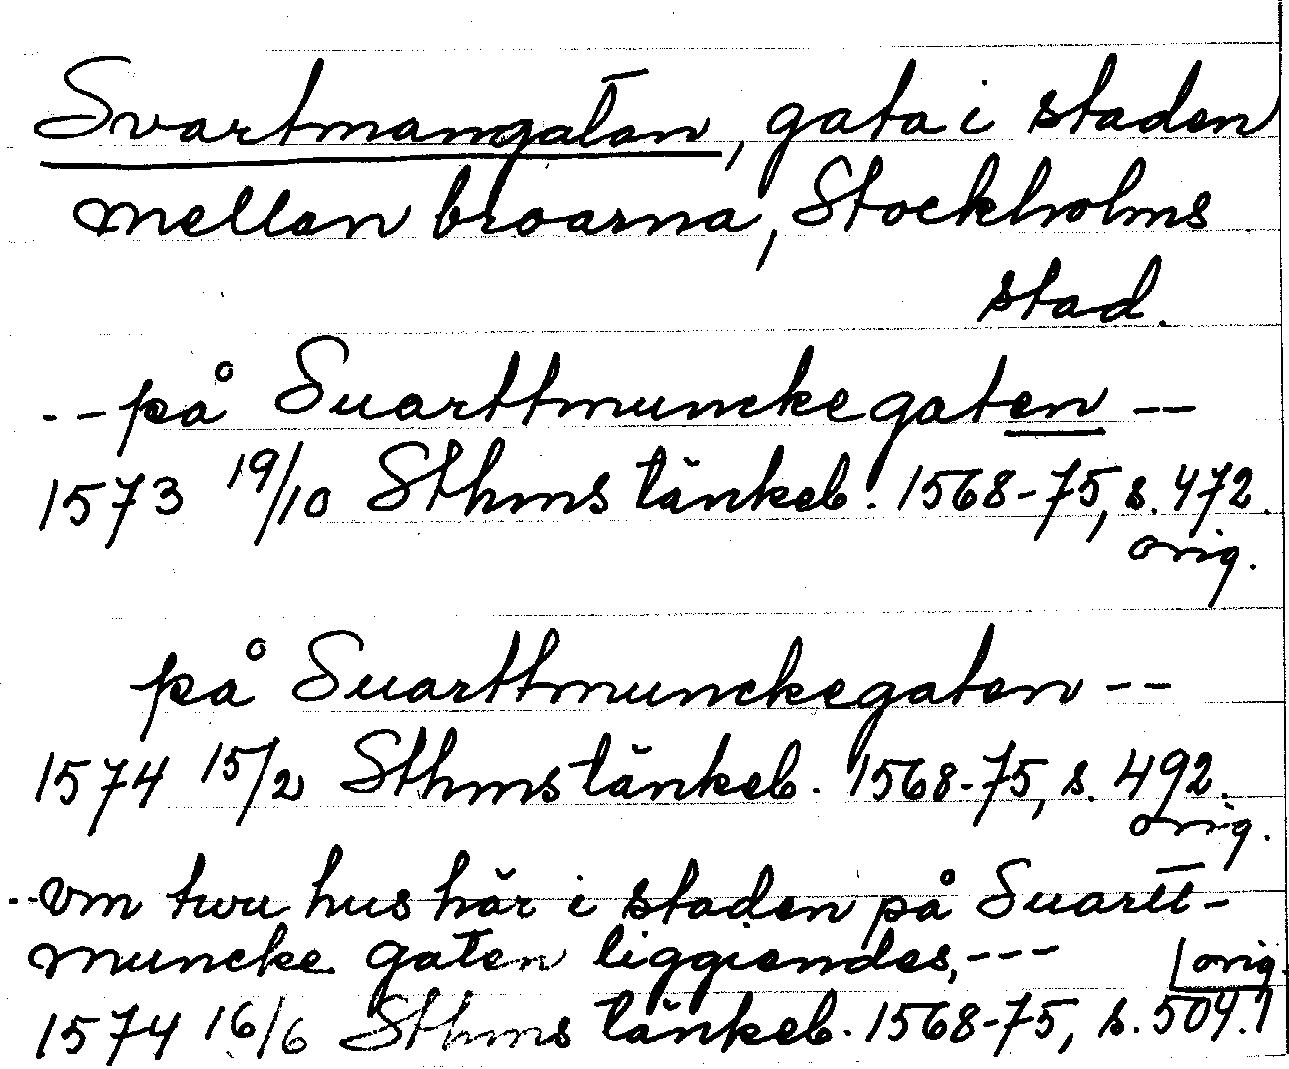 Svartmangatan, gata i staden
mellan broarna, Stockholms
stad.
-- på Suarttmunckegaten --
1573 19/10 Sthms tänkeb. 1568-75, s. 472.
orig.
på Suarttmunckegaten --
1574 15/2 Sthms tänkeb. 1568-75, s. 492.
orig.
-- vm twu hus här i staden på Suartt-
muncke gaten liggiendes, ---
orig.
1574 16/6 Sthms tänkeb. 1568-75, s. 504.